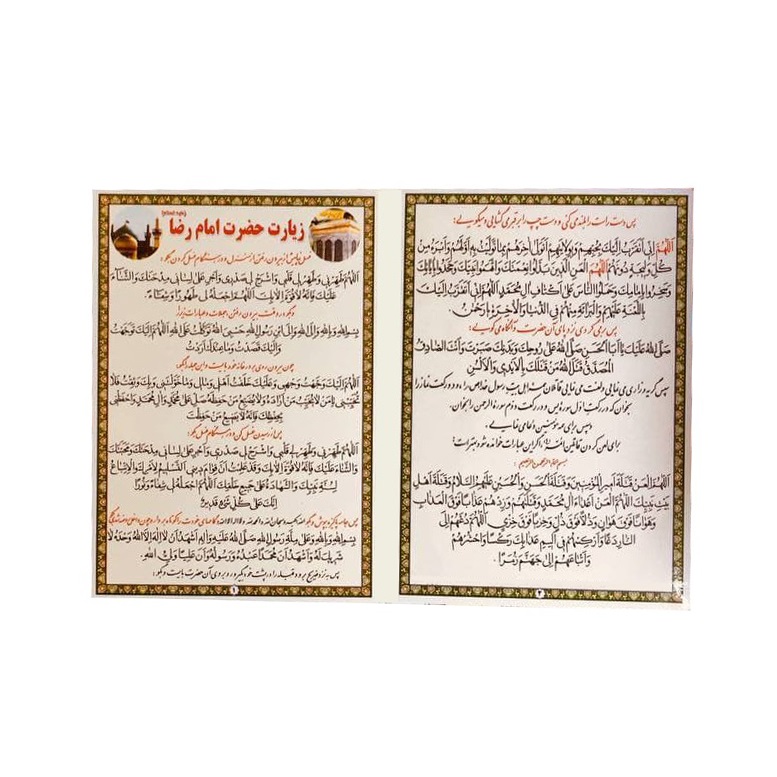 (علیه السلام)
زیارت حضرت امام رضا
اَللّهُمَّ طَهِّرْنی وَطَهِّرْ لی قَلْبی وَاشْرَحْ لی صَدْری وَاَجْرِ عَلی لِسانی مِدْحَتَکَ وَالثَّنآءَ
عَلَیْکَ فَاِنَّهُ لاقُوَّةَ اِلاّبِکَ اَللّهُمَّ اجْعَلْهُ لی طَهُوراً وَشِفآءً
بِسْمِ اللهِ وَبِاللهِ وَاِلَی اللهِ وَاِلَی ابْنِ رَسُولِ اللهِ حَسْبِیَ اللهُ تَوَکَّلْتُ عَلَی اللهِ اَللّهُمَّ اِلَیْکَ تَوَجَّهْتُ
وَاِلَیْکَ قَصَدْتُ وَماعِنْدَکَ اَرَدْتُ
چون بیرون روی بر در خانه خود بایست و این جمله را بگو:
اَللّهُمَّ اِلَیْکَ وَجَّهْتُ وَجْهی وَعَلَیْکَ خَلَّفْتُ اَهْلی وَمالی وَماخَوَّلْتَنی وَبِکَ وَثِقْتُ فَلا
تُخَیِّبْنی یامَنْ لایُخَیِّبُ مَنْ اَرادَهُ وَلایُضَیِّعُ مَنْ حَفِظَهُ صَلِّ عَلی مُحَمَّدٍ وَآلِ مُحَمَّدٍ وَاحْفَظْنی
بِحِفْظِکَ فَاِنَّهُ لایَضیعُ مَنْ حَفِظْتَ
اَللّهُمَّ طَهِّرْنی وَطَهِّرْ لی قَلْبی وَاشْرَحْ لی صَدْری وَاَجْرِ عَلی لِسانی مِدْحَتَکَ وَمَحَبَّتَکَ
وَالثَّنآءَ عَلَیْکَ فَاِنَّهُ لاقُوَّةَ اِلاّبِکَ وَقَدْعَلِمْتُ اَنَّ قِوامَ دینی التَّسْلیمُ لِاَمْرِکَ وَالْاِتِّباعُ
لِسُنَّةِ نَبِیِّکَ وَالشَّهادَةُ عَلی جَمیعِ خَلْقِکَ اَللّهُمَّ اجْعَلْهُ لی شِفآءً وَنُوراً
اِنَّکَ عَلی کُلِّ شَیْءٍ قَدیرٌ
بِسْمِ اللهِ وَبِاللهِ وَعَلی مِلَّةِ رَسُولِ اللهِ صَلَّی اللهُ عَلَیْهِ وَآلِهِ اَشْهَدُ اَنْ لااِلهَ اِلاَّاللهُ وَحْدَهُ لا
شَریکَ لَهُ وَاَشْهَدُ اَنَّ مُحَمَّداً عَبْدُهُ وَرَسُولُهُ وَاَنَّ عَلِیّاً وَلِیُّ اللهِ
۱
اَللّهُمَّ اِنّی اَتَقَرَّبُ اِلَیْکَ بِحُبِّهِمْ وَبِوِلایَتِهِمْ اَتَوَلّی آخِرَهُمْ بِماتَوَلَّیْتُ بِهِ اَوَّلَهُمْ وَاَبْرَءُ مِنْ
کُلِّ وَلیجَةٍ دُونَهُمْ اَللّهُمَّ الْعَنِ الَّذینَ بَدَّلُوا نِعْمَتَکَ وَاتَّهَمُوا نَبِیَّکَ وَجَحَدُوا بِایاتِکَ
وَسَخِرُوا بِاِمامِکَ وَحَمَلُوا النّاسَ عَلی اَکْتافِ آلِ مُحَمَّدٍ اَللّهُمَّ اِنّی اَتَقَرَّبُ اِلَیْکَ
بِاللَّعْنَةِ عَلَیْهِمْ وَالْبَرآئَةِ مِنْهُمْ فِی الدُّنْیا وَالْاخِرَةِ یارَحْمنُ
پس برمی گردی نزد پای آن حضرت و آنگاه می گویی:
صَلَّی اللهُ عَلَیْکَ یااَبَا الْحَسَنِ صَلَّی اللهُ عَلی رُوحِکَ وَبَدَنِکَ صَبَرْتَ وَاَنْتَ الصّادِقُ
الْمُصَدَّقُ قَتَلَ اللهُ مَنْ قَتَلَکَ بِالْاَیْدی وَالْاَلْسُنِ
بخوان که در رکعت اول سوره یس و در رکعت دوم سوره الرحمن را بخوان.
و سپس برای همه مومنین دعا می نمایی.
اَللّهُمَّ الْعَنْ قَتَلَةَ اَمیرِالْمُؤْمِنینَ وَقَتَلَةَ الْحَسَنِ وَالْحُسَیْنِ عَلَیْهِمُ السَّلامُ وَقَتَلَةَ اَهْلِ
بَیْتِ نَبِیِّکَ اَللّهُمَّ الْعَنْ اَعْدآءَ آلِ مُحَمَّدٍ وَقَتَلَتَهُمْ وَزِدْهُمْ عَذاباً فَوْقَ الْعَذابِ
وَهَواناً فَوْقَ هَوانٍ وَذُلاًّ فَوْقَ ذُلٍّ وَخِزْیاً فَوْقَ خِزْیٍ اَللّهُمَّ دُعَّهُمْ اِلَی
النّارِ دَعّاً وَاَرْکِسْهُمْ فی اَلیمِ عَذابِکَ رَکْساً وَاحْشُرْهُمْ
وَاَتْباعَهُمْ اِلی جَهَنَّمَ زُمَراً.
۲